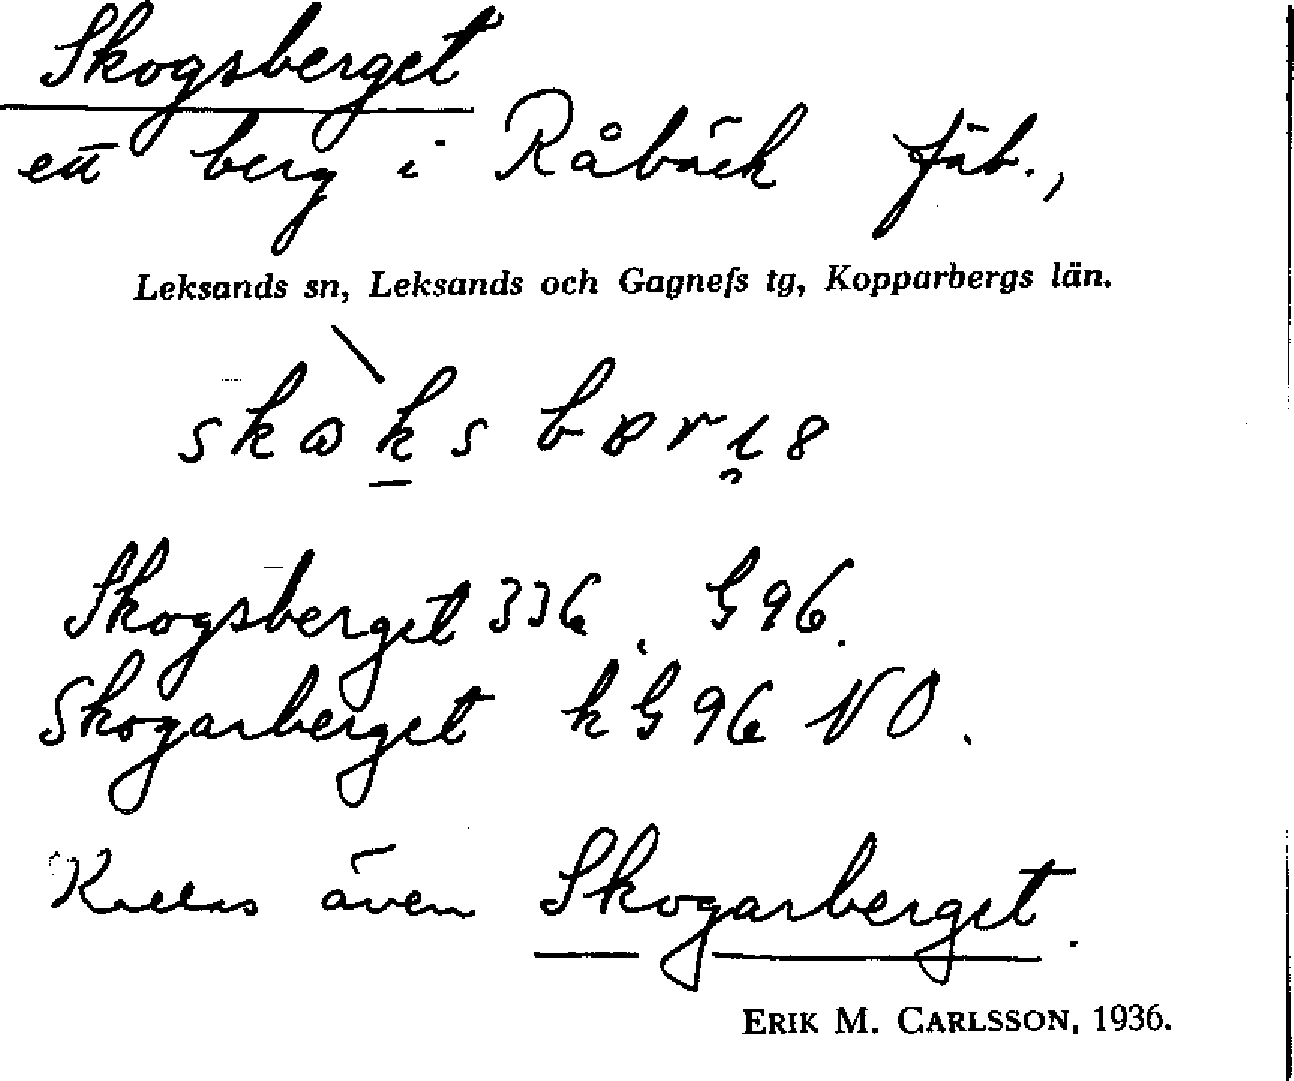 Skogsberget
ett berg i Råbäck fäb.,
Leksands sn, Leksands och Gagnefs tg, Kopparbergs län.
Skogsberget 336. G 96.
Skogarberget k G 96 NO.
Kallas även Skogarberget.
ERIK M. CARLSSON, 1936.